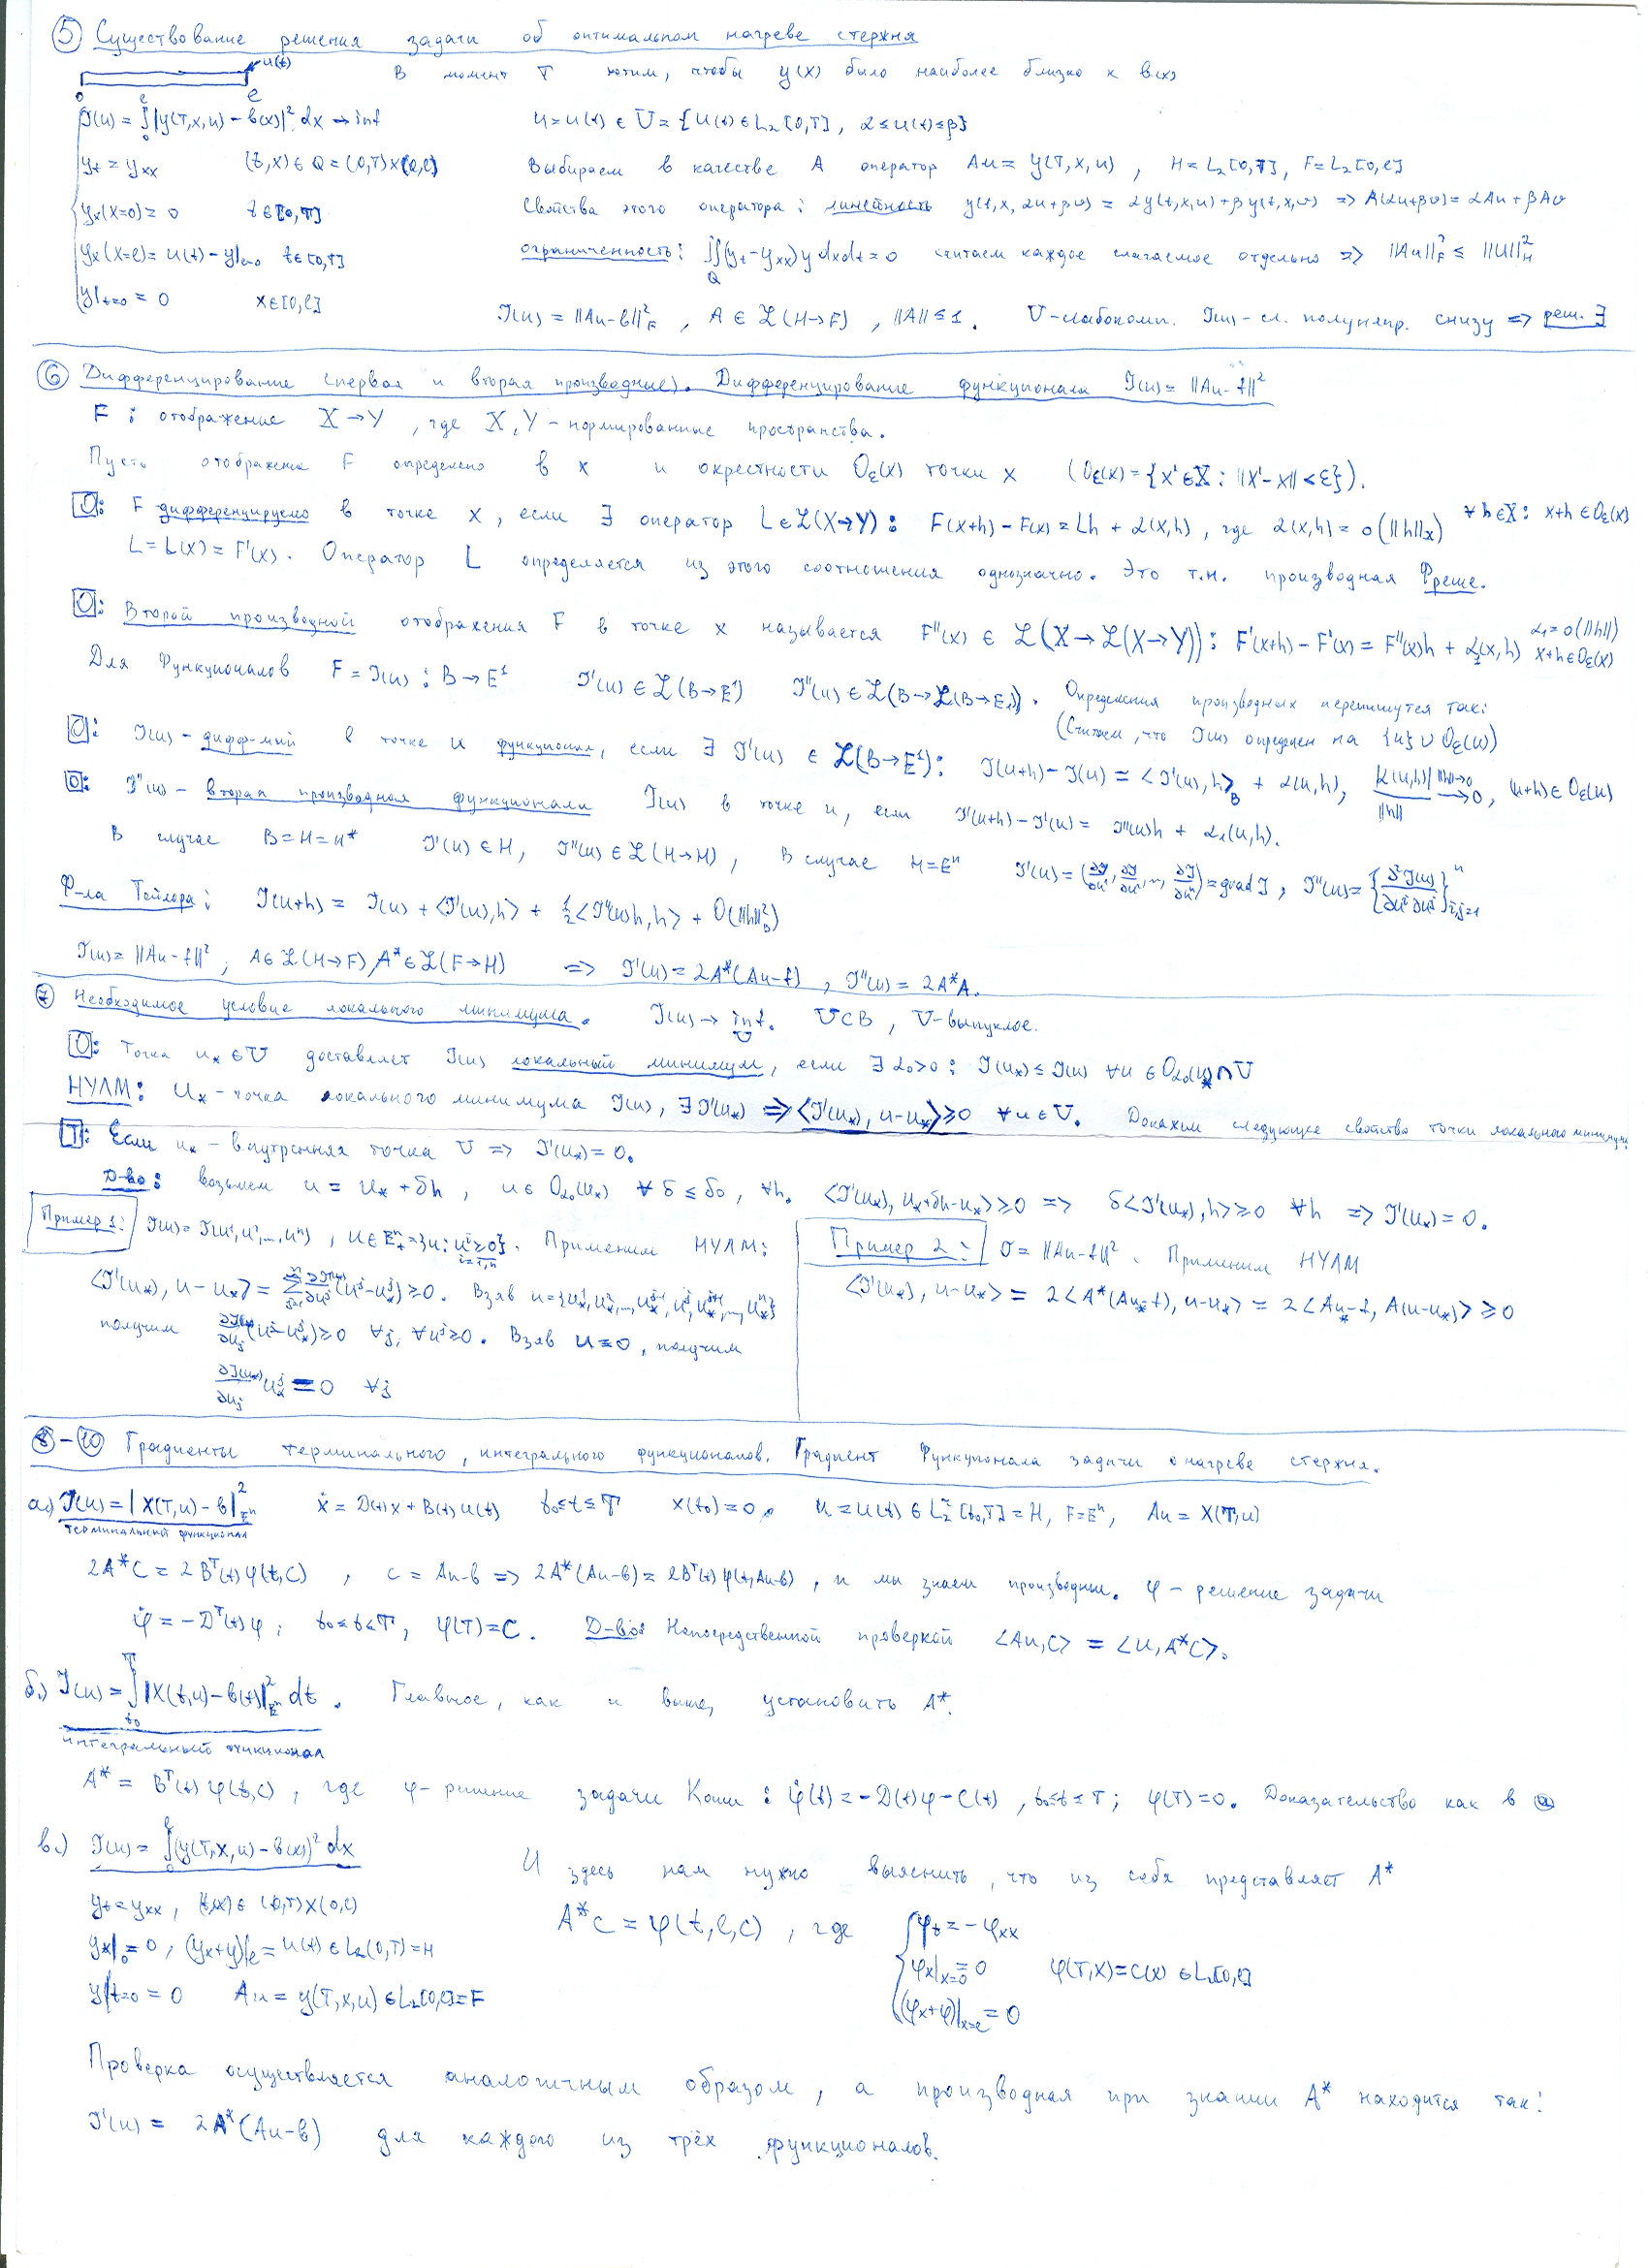 ⑤ Существование решения задачи об оптимальном нагреве стержня
u(t) В момент T хотим, чтобы y(x) было наиболее близко к b(x)
0 l
J(u) = ∫₀ˡ |y(T,x,u) – b(x)|² dx → inf u = u(t) ∈ U = {u(t) ∈ L₂[0,T], α ≤ u(t) ≤ β}
y_t = y_xx (t,x) ∈ Q = (0,T)×(0,l) Выбираем в качестве A оператор Au = y(T,x,u), H = L₂[0,T], F = L₂[0,l]
y_x(x=0) = 0 t∈[0,T] Свойства этого оператора: линейность y(t,x,αu+βv) = αy(t,x,u) + βy(t,x,v) ⇒ A(αu+βv) = αAu + βAv
y_x(x=l) = u(t) – y|ₓ₌ₗ t∈[0,T] ограниченность: ∬_Q (y_t – y_xx) y dxdt = 0 считаем каждое слагаемое отдельно ⇒ ||Au||²_F ≤ ||u||²_H
y|t=0 = 0 x∈[0,l] J(u) = ||Au–b||²_F, A ∈ L(H→F), ||A|| ≤ 1. U–слабокомп. J(u) – сл. полунепр. снизу ⇒ реш. ∃
⑥ Дифференцирование (первая и вторая производные). Дифференцирование функционала J(u) = ||Au–f||²
F : отображение X→Y, где X, Y – нормированные пространства.
Пусть отображение F определено в x и окрестности O_ε(x) точки x (O_ε(x) = {x' ∈ X : ||x'–x|| < ε}).
О: F дифференцируемо в точке x, если ∃ оператор L ∈ L(X→Y): F(x+h) – F(x) = Lh + α(x,h), где α(x,h) = o(||h||_X) ∀h∈X: x+h ∈ O_ε(x)
L = L(x) = F'(x). Оператор L определяется из этого соотношения однозначно. Это т.н. производная Фреше.
О: Второй производной отображения F в точке x называется F''(x) ∈ L(X→L(X→Y)): F'(x+h) – F'(x) = F''(x)h + α₁(x,h) α₁ = o(||h||) x+h ∈ O_ε(x)
Для функционалов F = J(u) : B→E¹ J'(u) ∈ L(B→E¹) J''(u) ∈ L(B→L(B→E¹)). Определения производных перепишутся так:
(Считаем, что J(u) определен на {u} ∪ O_ε(u))
О: J(u) – дифф-мый в точке u функционал, если ∃ J'(u) ∈ L(B→E¹): J(u+h) – J(u) = <J'(u),h>_B + α(u,h), |α(u,h)|/||h|| → 0 ||h||→0, (u+h) ∈ O_ε(u)
О: J''(u) – вторая производная функционала J(u) в точке u, если J'(u+h) – J'(u) = J''(u)h + α₁(u,h).
В случае B = H = H* J'(u) ∈ H, J''(u) ∈ L(H→H), В случае H = Eⁿ J'(u) = (∂J/∂u¹, ∂J/∂u², ..., ∂J/∂uⁿ) = grad J, J''(u) = {∂²J(u)/∂uⁱ∂uʲ}ⁿ i,j=1
Ф-ла Тейлора: J(u+h) = J(u) + <J'(u),h> + ½<J''(u)h,h> + O(||h||²_B)
J(u) = ||Au–f||², A ∈ L(H→F), A* ∈ L(F→H) ⇒ J'(u) = 2A*(Au–f), J''(u) = 2A*A.
⑦ Необходимое условие локального минимума. J(u) → inf_U. U⊂B, U–выпуклое.
О: Точка u* ∈ U доставляет J(u) локальный минимум, если ∃ α₀>0 : J(u*) ≤ J(u) ∀u ∈ O_α₀(u*) ∩ U
НУЛМ: u* – точка локального минимума J(u), ∃ J'(u*) ⇒ <J'(u*), u–u*> ≥ 0 ∀u ∈ U. Докажем следующее свойство точки локального минимума
Т: Если u* – внутренняя точка U ⇒ J'(u*) = 0.
Д-во: возьмем u = u* + δh, u ∈ O_α₀(u*) ∀ δ ≤ δ₀, ∀h. <J'(u*), u*+δh–u*> ≥ 0 ⇒ δ<J'(u*),h> ≥ 0 ∀h ⇒ J'(u*) = 0.
Пример 1: J(u) = J(u¹,u²,...,uⁿ), u ∈ Eⁿ₊ = {u: uⁱ ≥ 0 i=1,n}. Применим НУЛМ:
<J'(u*), u–u*> = Σ ∂J(u*)/∂uʲ (uʲ–u*ʲ) ≥ 0. Взяв u = {u*¹, u*², ..., u*ʲ⁻¹, uʲ, u*ʲ⁺¹, ..., u*ⁿ}
получим ∂J(u*)/∂uj (uʲ–u*ʲ) ≥ 0 ∀j, ∀uʲ ≥ 0. Взяв u = 0, получим
∂J(u*)/∂uj u*ʲ = 0 ∀j
Пример 2: J = ||Au–f||². Применим НУЛМ
<J'(u*), u–u*> = 2<A*(Au*–f), u–u*> = 2<Au*–f, A(u–u*)> ≥ 0
⑧–⑩ Градиенты терминального, интегрального функционалов. Градиент функционала задачи о нагреве стержня.
а.) J(u) = |x(T,u) – b|²_Eⁿ ẋ = D(t)x + B(t)u(t) t₀≤t≤T x(t₀) = 0. u = u(t) ∈ L₂ʳ[t₀,T] = H, F = Eⁿ, Au = x(T,u)
терминальный функционал
2A*C = 2Bᵀ(t)φ(t,C), c = Au–b ⇒ 2A*(Au–b) = 2Bᵀ(t)φ(t,Au–b), и мы знаем производные. φ – решение задачи
φ̇ = –Dᵀ(t)φ; t₀≤t≤T, φ(T) = C. Д-во: Непосредственной проверкой <Au,C> = <u,A*C>.
б.) J(u) = ∫_{t₀}^T |x(t,u) – b(t)|²_Eⁿ dt. Главное, как и выше, установить A*.
интегральный функционал
A* = Bᵀ(t)φ(t,c), где φ – решение задачи Коши: φ̇(t) = –D(t)φ – C(t), t₀≤t≤T; φ(T) = 0. Доказательство как в а
в.) J(u) = ∫₀ˡ (y(T,x,u) – b(x))² dx И здесь нам нужно выяснить, что из себя представляет A*
y_t = y_xx, (t,x) ∈ (0,T)×(0,l) A*c = φ(t,l,c), где φ_t = –φ_xx
y_x|₀ = 0, (y_x+y)|ₗ = u(t) ∈ L₂(0,T) = H φ_x|ₓ₌₀ = 0 φ(T,x) = c(x) ∈ L₂[0,l]
y|t=0 = 0 Au = y(T,x,u) ∈ L₂[0,l] = F (φ_x+φ)|ₓ₌ₗ = 0
Проверка осуществляется аналогичным образом, а производная при знании A* находится так:
J'(u) = 2A*(Au–b) для каждого из трёх функционалов.